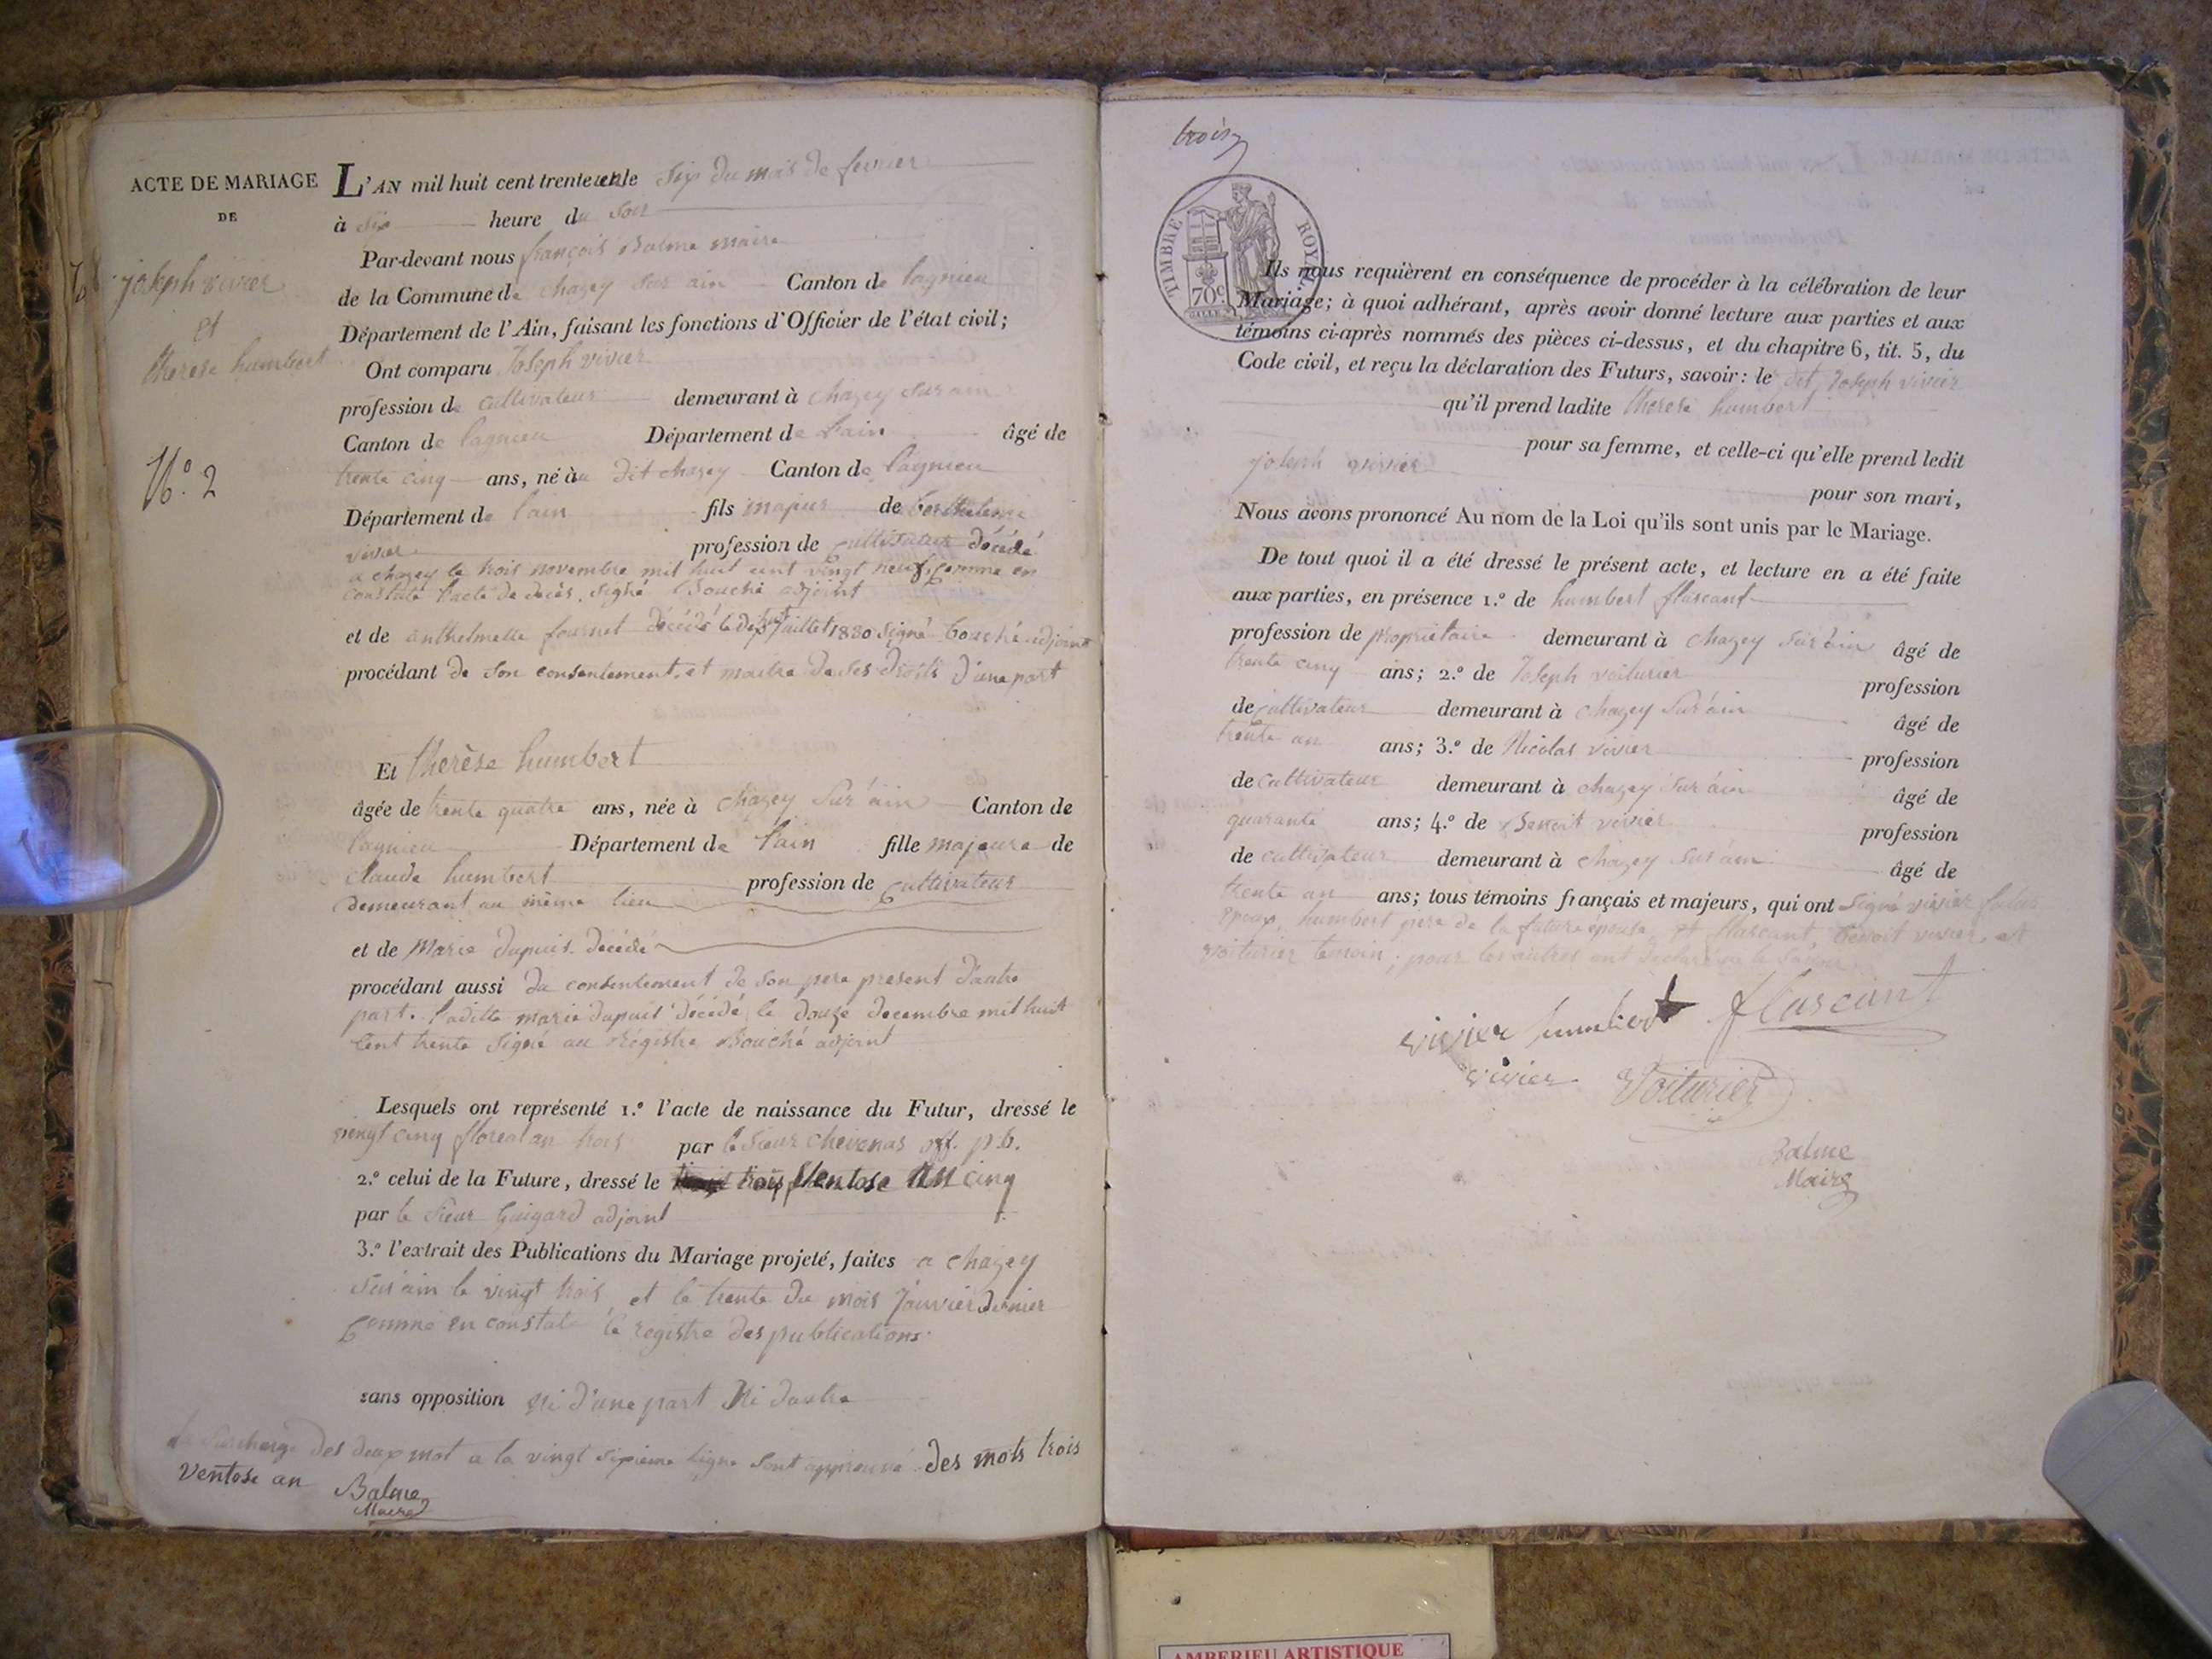 ACTE DE MARIAGE
DE
joseph vivier
et
therese humbert
N.º 2
L'AN mil huit cent trente un le six du mois de fevrier
à six heure du soir
Par-devant nous françois Balme maire
de la Commune de chazey sur ain Canton de lagnieu
Département de l'Ain, faisant les fonctions d'Officier de l'état civil;
Ont comparu Joseph vivier
profession de cultivateur demeurant à chazey sur ain
Canton de lagnieu Département de l'ain âgé de
trente cinq ans, né àu dit chazey Canton de lagnieu
Département de l'ain fils majeur de berthelemi
vivier profession de cultivateur décédé
a chazey le trois novembre mil huit cent vingt neuf comme en
constate l'acte de décès. signé Bouché adjoint
et de anthelmette fournet décédé le dix juillet 1830 signé bouché adjoint
procédant de son consentement. et maitre de ses droits d'une part
Et therèse humbert
âgée de trente quatre ans, née à chazey sur ain Canton de
lagnieu Département de l'ain fille majeure de
claude humbert profession de cultivateur
demeurant au même lieu
et de Marie dupuis décédé
procédant aussi du consentement de son pere present d'autre
part. laditte marie dupuis décédé le douze decembre mil huit
cent trente signé au Régistre Bouché adjoint
Lesquels ont représenté 1.º l'acte de naissance du Futur, dressé le
vengt cinq floreal an trois par le sieur chevenas off. p.b.
2.º celui de la Future, dressé le trois Ventose an cinq
par le sieur guigard adjoint
3.º l'extrait des Publications du Mariage projeté, faites a chazey
sur ain le vingt trois et le trente du mois Janvier dernier
comme en constate le registre des publications.
sans opposition ni d'une part Ni dautre
la surcharge des deux mot a la vingt sixieme ligne sont approuvé des mots trois
Ventose an Balme
Maire
trois
TIMBRE ROYAL
70c
Ils nous requièrent en conséquence de procéder à la célébration de leur
Mariage; à quoi adhérant, après avoir donné lecture aux parties et aux
témoins ci-après nommés des pièces ci-dessus, et du chapitre 6, tit. 5, du
Code civil, et reçu la déclaration des Futurs, savoir: le dit Joseph vivier
qu'il prend ladite therese humbert
pour sa femme, et celle-ci qu'elle prend ledit
joseph vivier
pour son mari,
Nous avons prononcé Au nom de la Loi qu'ils sont unis par le Mariage.
De tout quoi il a été dressé le présent acte, et lecture en a été faite
aux parties, en présence 1.º de humbert flascant
profession de propriétaire demeurant à chazey sur ain âgé de
trente cinq ans; 2.º de Joseph voiturier profession
de cultivateur demeurant à chazey sur ain âgé de
trente an ans; 3.º de Nicolas vivier profession
de cultivateur demeurant à chazey sur ain âgé de
quarante ans; 4.º de Benoit vivier profession
de cultivateur demeurant à chazey sur ain âgé de
trente an ans; tous témoins français et majeurs, qui ont signé vivier futur
epoux, humbert pere de la future épouse, et flascant, benoit vivier, et
voiturier temoin; pour les autres ont déclaré ne le savoir
vivier humbert flascant
vivier Voiturier
Balme
Maire
AMBERIEU ARTISTIQUE